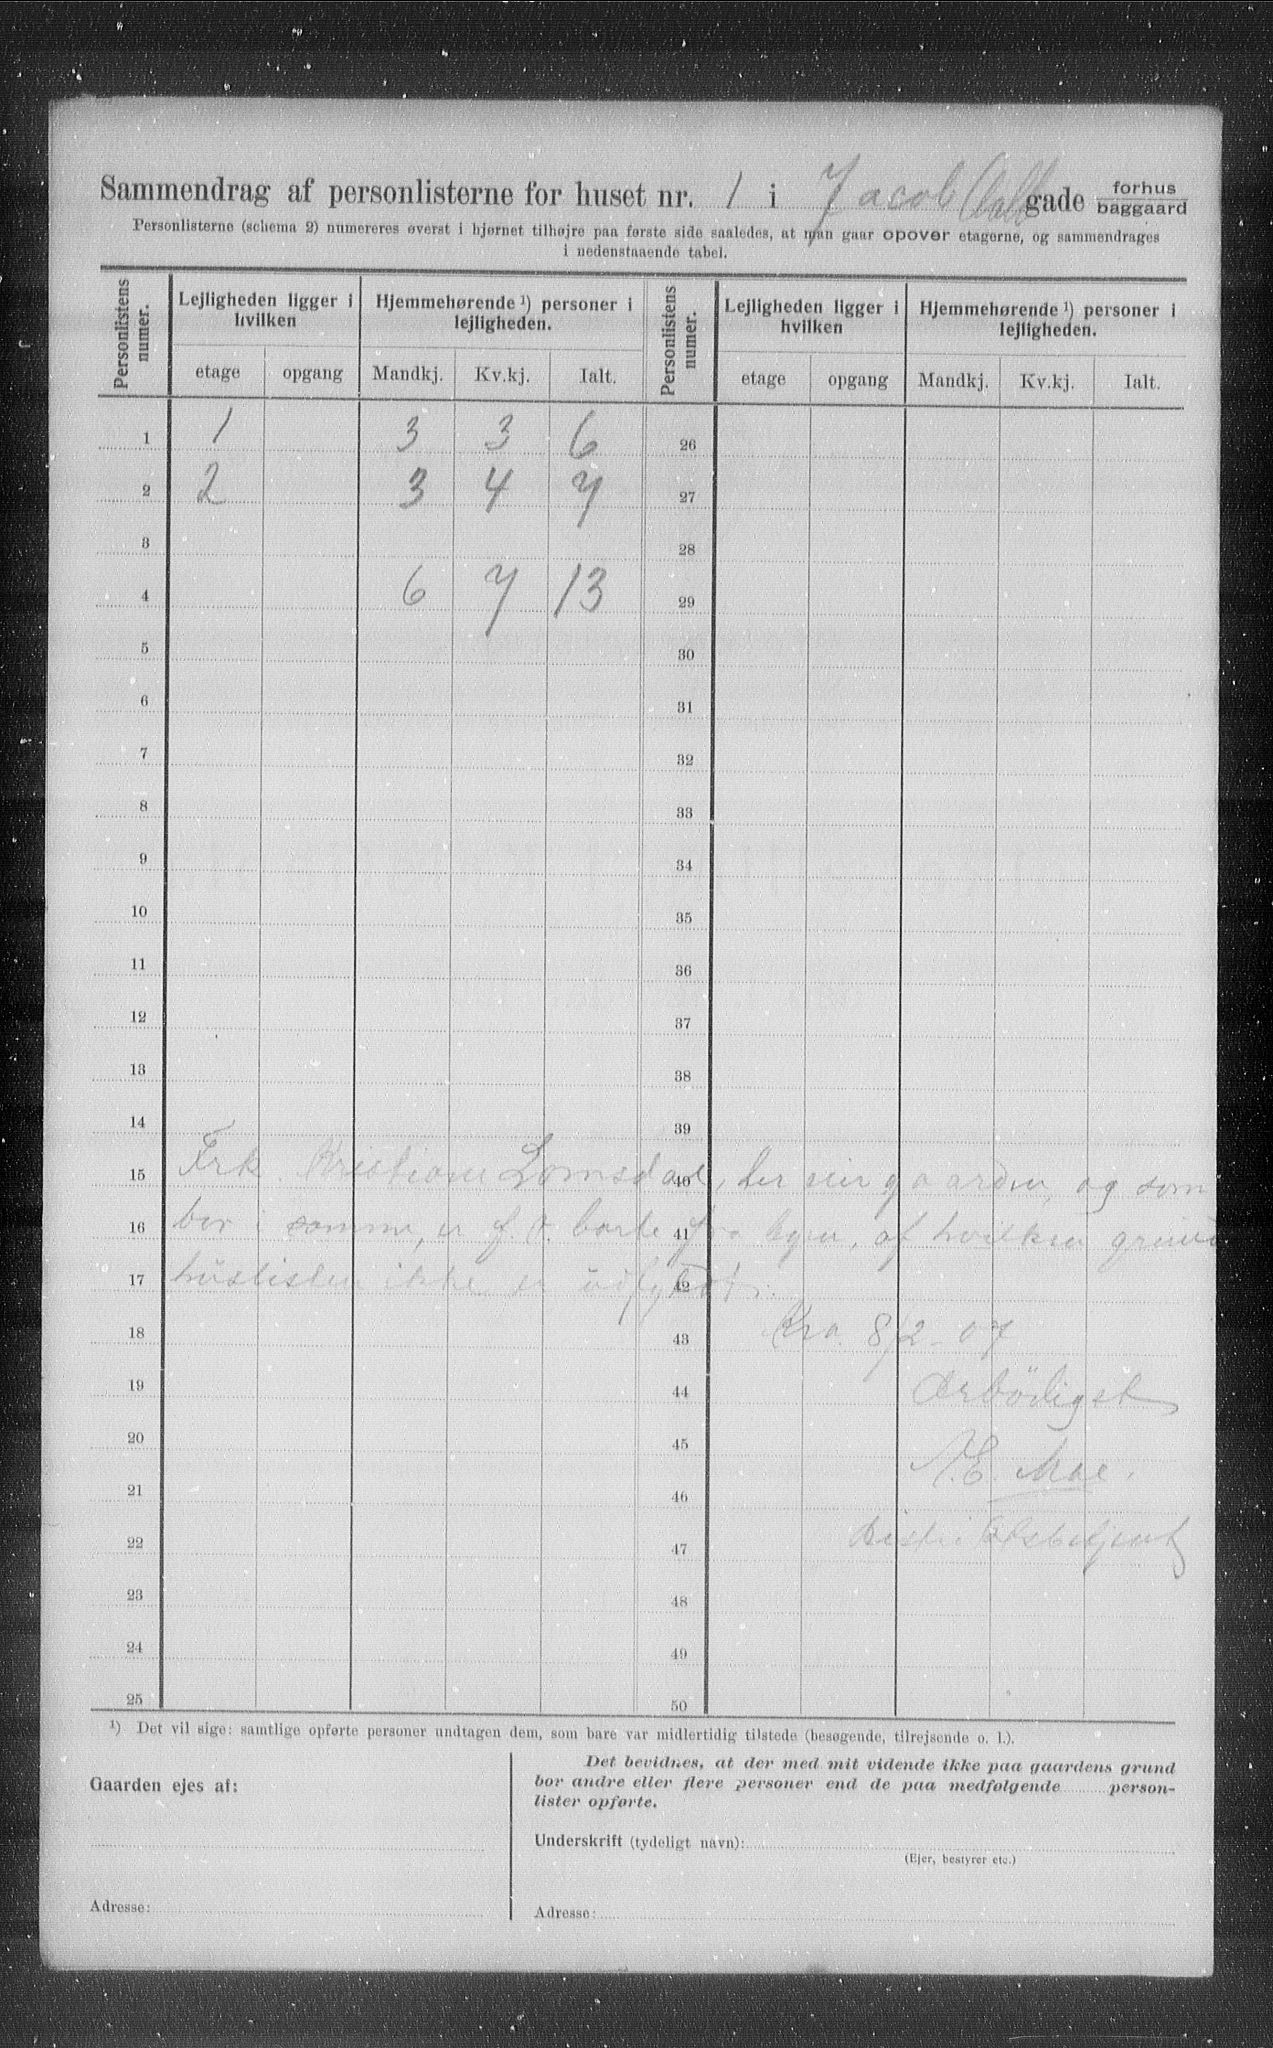 Sammendrag af personlisterne for huset nr. 1 i Jacob Aall gade forhus baggaard
Personlisterne (schema 2) numereres øverst i hjørnet tilhøjre paa første side saaledes, at man gaar opover etagerne, og sammendrages
i nedenstaaende tabel.
Personlistens numer. Lejligheden ligger i hvilken Hjemmehørende ¹) personer i lejligheden. Personlistens numer. Lejligheden ligger i hvilken Hjemmehørende ¹) personer i lejligheden.
etage opgang Mandkj. Kv.kj. Ialt. etage opgang Mandkj. Kv.kj. Ialt.
1 1 3 3 6 26
2 2 3 4 7 27
3 28
4 6 7 13 29
5 30
6 31
7 32
8 33
9 34
10 35
11 36
12 37
13 38
14 39
Frk. Kristiane Lomsdal, der eier gaarden, og som
15 40
bor i samme, er f. t. borte fra byen, af hvilken grund
16 41
huslisten ikke er udfyldt.
17 42
Kra. 8/2-07
18 43
Ærbödigst
19 44
20 45
A.E. Moe.
21 46
Distriktsbetjent
22 47
23 48
24 49
25 50
¹) Det vil sige: samtlige opførte personer undtagen dem, som bare var midlertidig tilstede (besøgende, tilrejsende o. l.).
Gaarden ejes af:
Adresse:
Det bevidnes, at der med mit vidende ikke paa gaardens grund
bor andre eller flere personer end de paa medfølgende person-
lister opførte.
Underskrift (tydeligt navn):
(Ejer, bestyrer etc.)
Adresse: